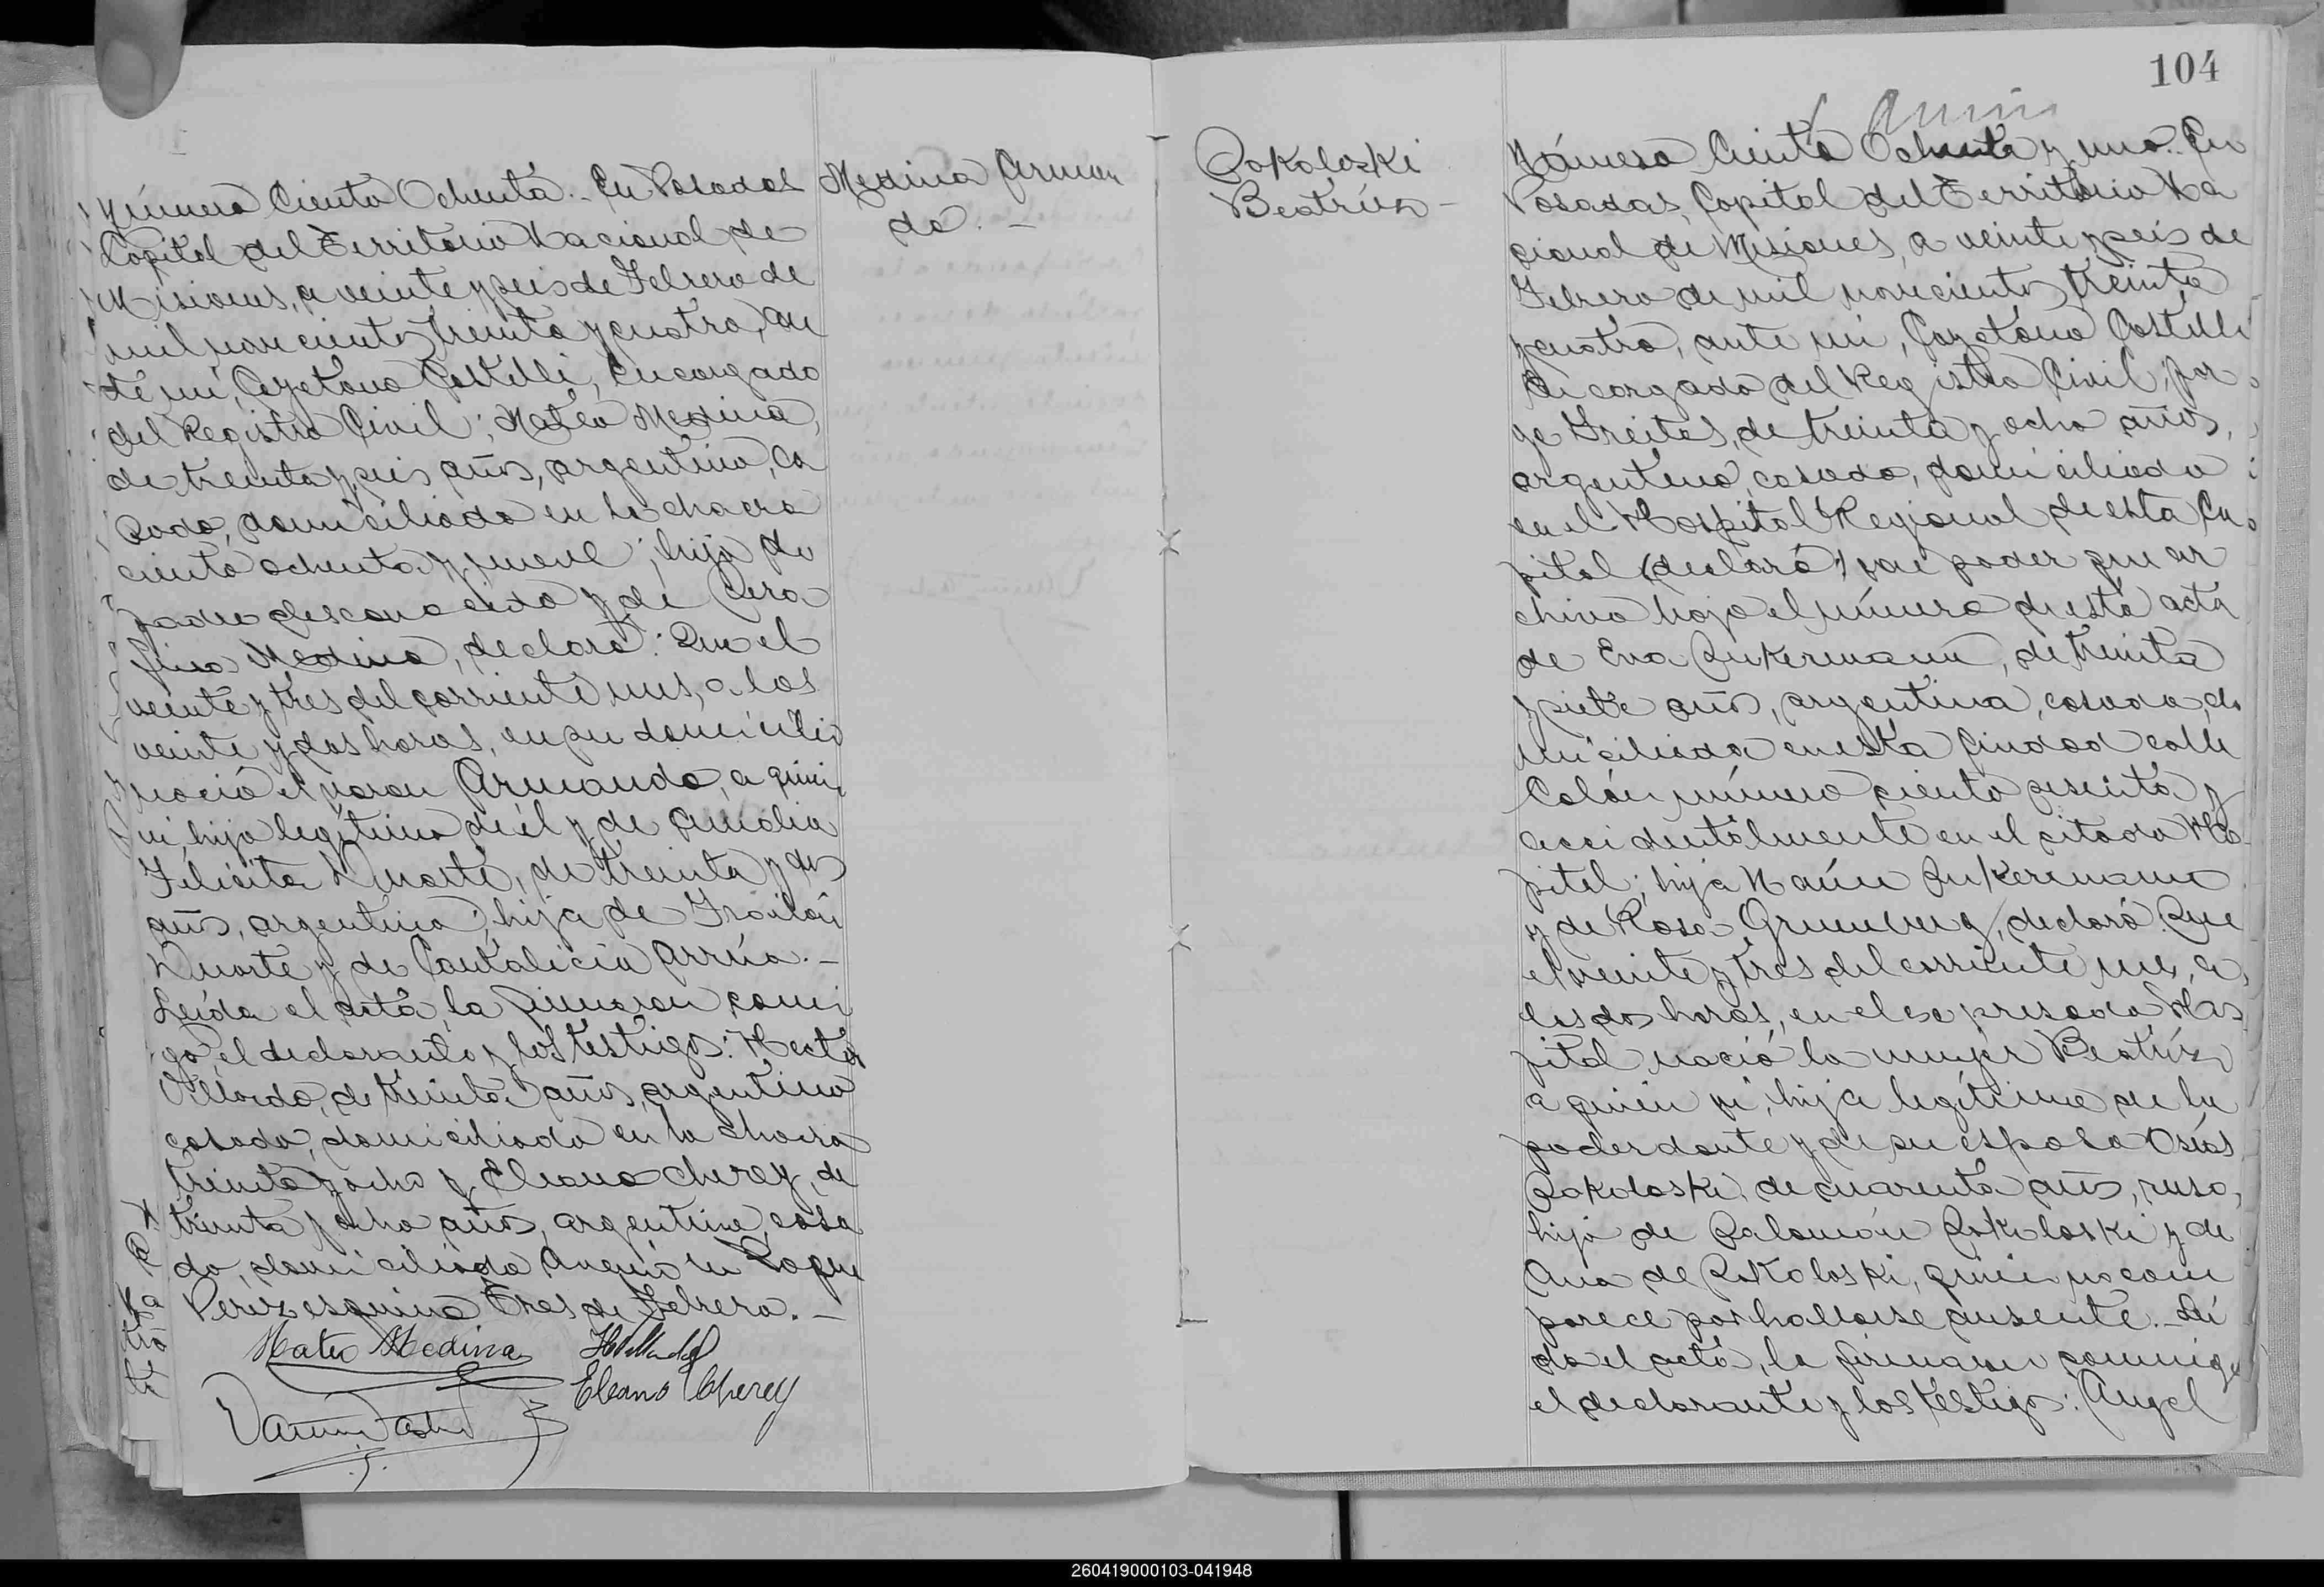 Número Ciento Ochenta.- En Posadas
Capital del Territorio Nacional de
Misiones, a veinte y seis de Febrero de
mil novecientos treinta y cuatro, an
te mí, Cayetano Castelli, Encargado
del Registro Civil; Mateo Medina,
de treinta y seis años, argentino, ca
sado, domiciliado en la chacra
ciento ochenta y nueve; hijo de
padre desconocido y de Sera
fina Medina, declaró: Que el
veinte y tres del corriente mes, a las
veinte y dos horas, en su domicilio
nació el varon Armando, a quien
vi, hijo legítimo de él y de Amalia
Felicita Duarte, de treinta y dos
años, argentina; hija de Froilán
Duarte y de Pantalicia Arrúa.-
Leída el acta, la firmaron conmi
go, el declarante y los testigos: Hector
Villordo, de treinta años, argentino
casado, domiciliado en la chacra
treinta y ocho y Eleano Cherey, de
treinta y ocho años, argentino, casa
do, domiciliado Avenida Roque
Perez esquina Tres de Febrero.-
Mateo Medina
Eleano Cherey
Medina Arman
do.-
104
Sokoloski
Beatríz-
Número Ciento Ochenta y uno.- En
Posadas, Capital del Territorio Na
cional de Misiones, a veinte y seis de
Febrero de mil novecientos treinta
y cuatro, ante mí, Cayetano Castelli
Encargado del Registro Civil; Jor
ge Freites, de treinta y ocho años,
argentino, casado, domiciliado
en el Hospital Regional de esta Ca
pital (declaró) por poder que ar
chivo bajo el número de esta acta
de Eva Zukermann, de treinta
y siete años, argentina, casada, do
miciliada en esta ciudad calle
Colón número ciento sesenta y
accidentalmente en el citado Hos
pital; hija Naúm Zukermann
y de Rosa Grunberg, declaró: Que
el veinte y tres del corriente mes, a
las dos horas, en el expresado Hos
pital nació la mujer Beatríz
a quien vi, hija legítima de la
poderdante y de su esposo Osías
Sokoloski, de cuarenta años, ruso,
hijo de Salomón Sokoloski y de
Ana de Sokoloski, quien no com
parece por hallarse ausente.- Leí
da el acta, la firmaron conmigo
el declarante y los testigos: Angel
260419000103-041948